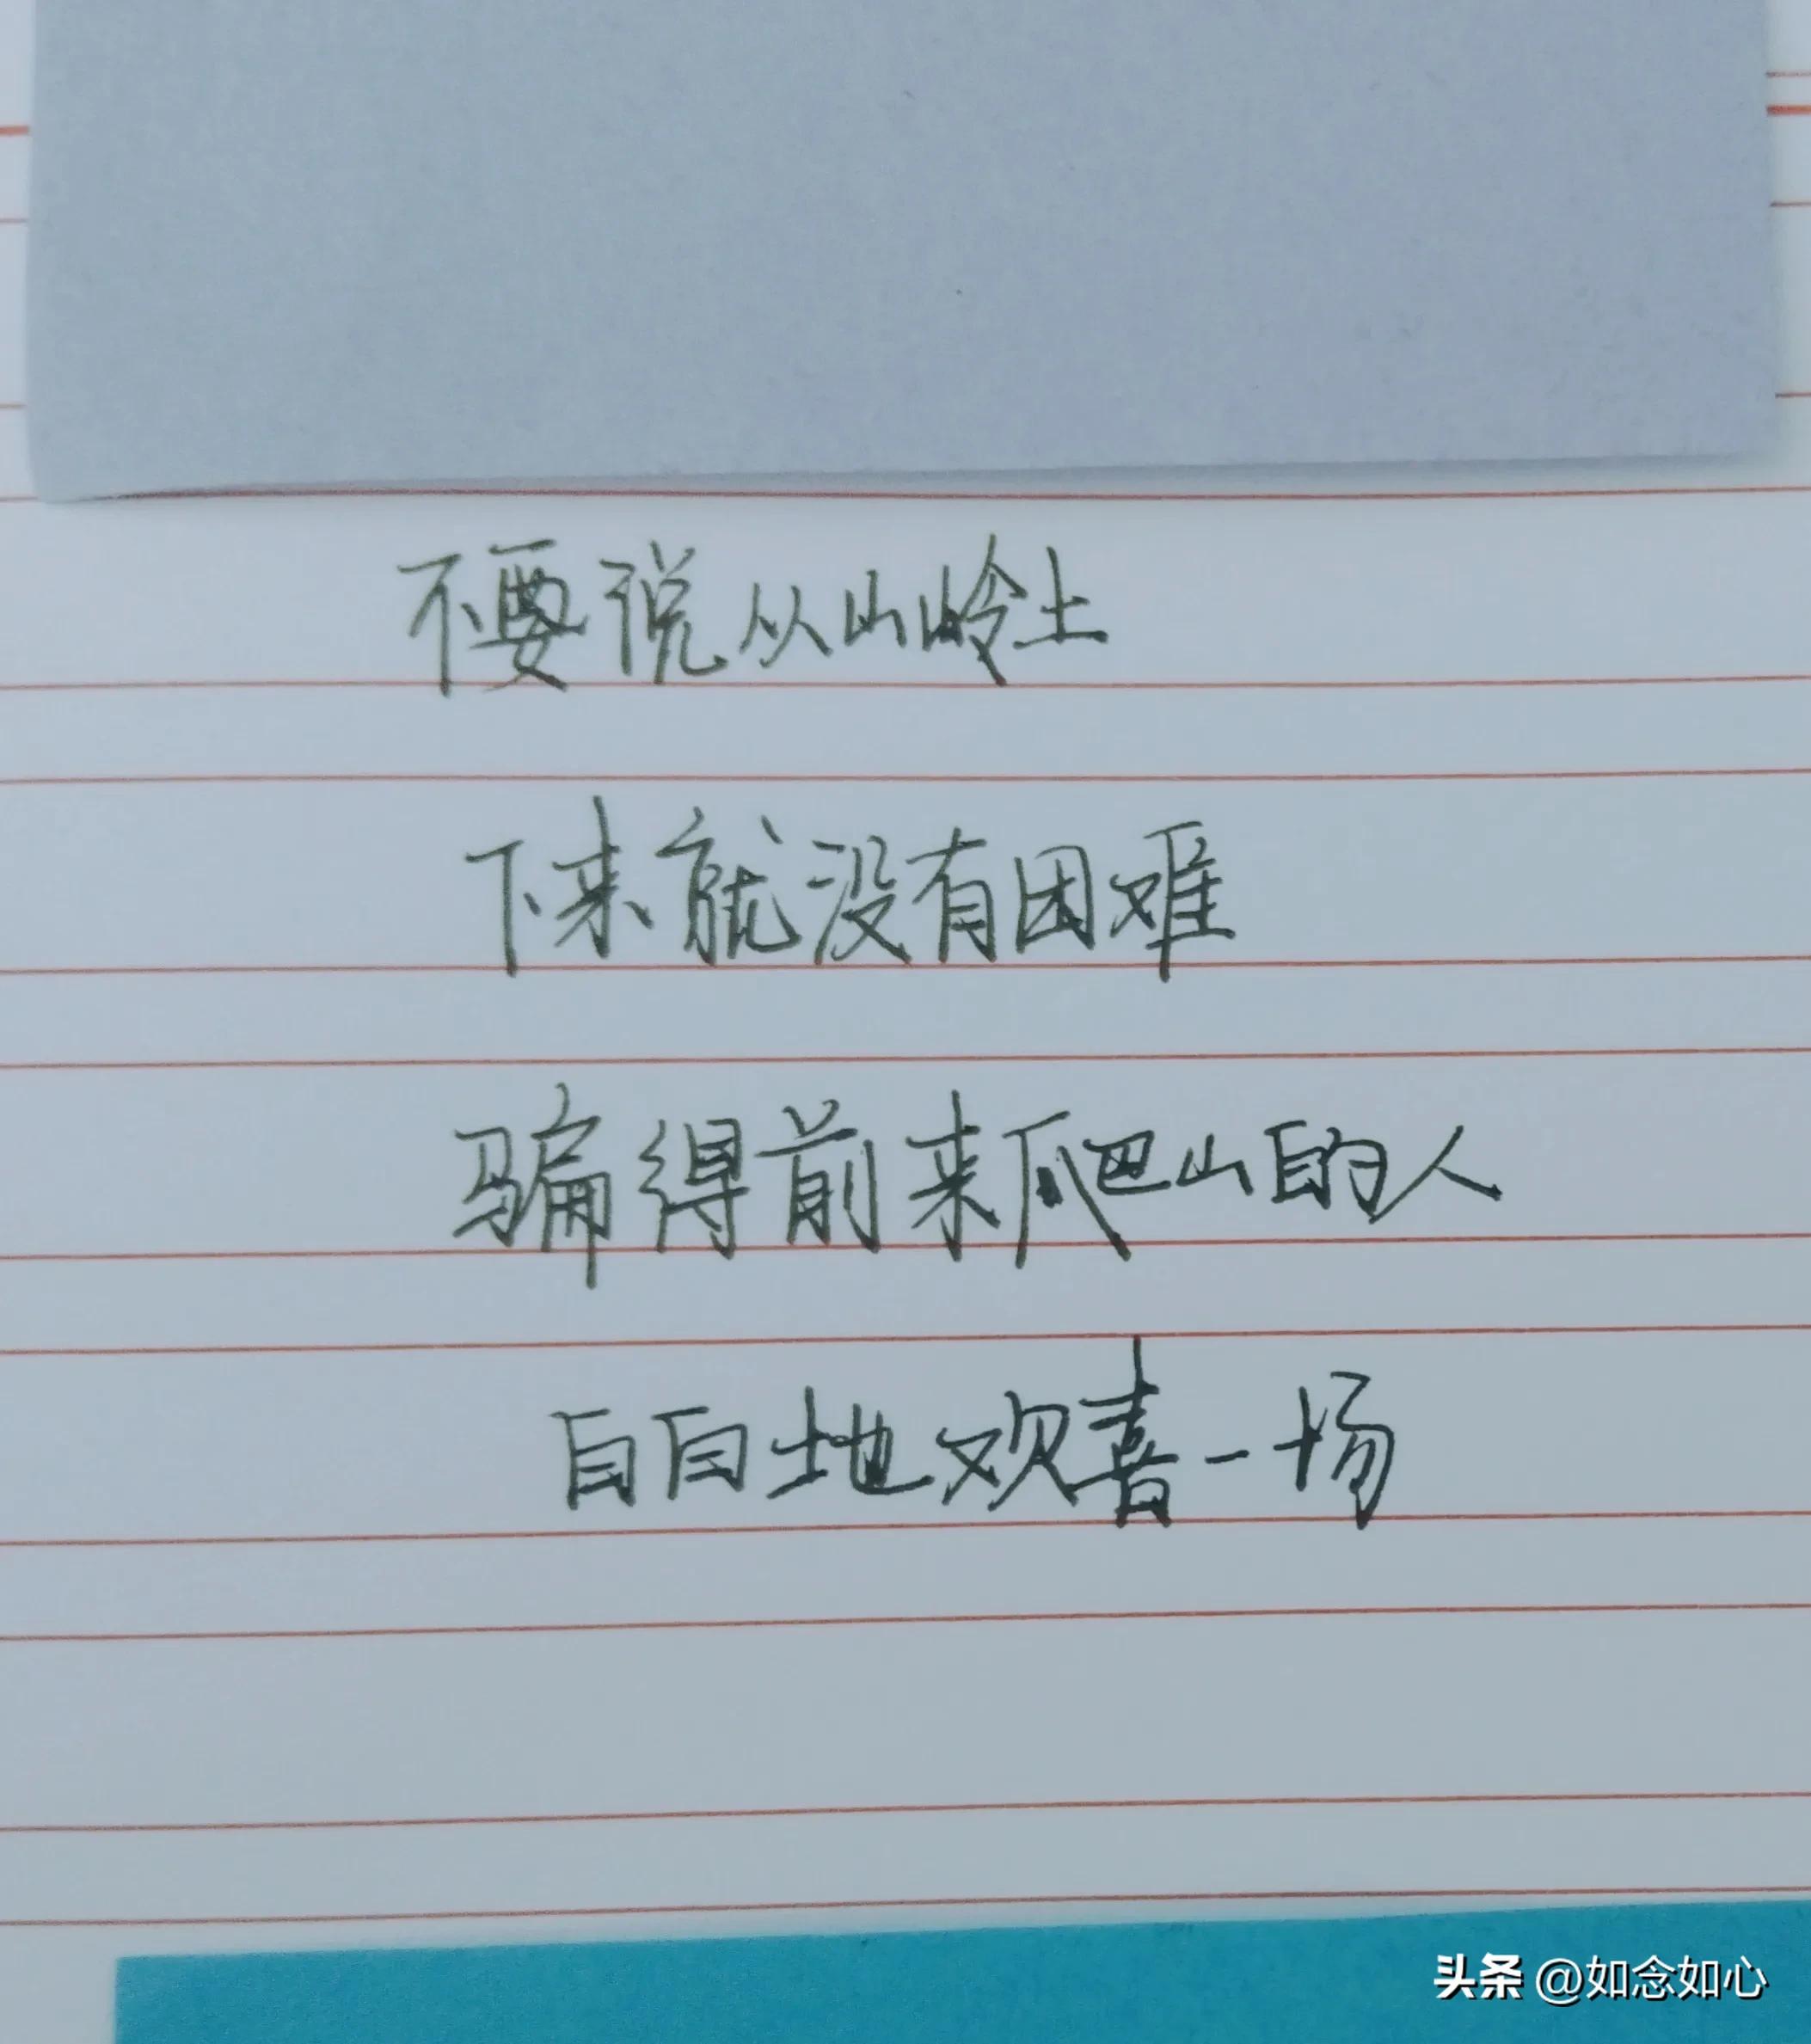 不要说从山岭上
下来就没有困难
骗得前来爬山的人
白白地欢喜一场
头条 @如念如心